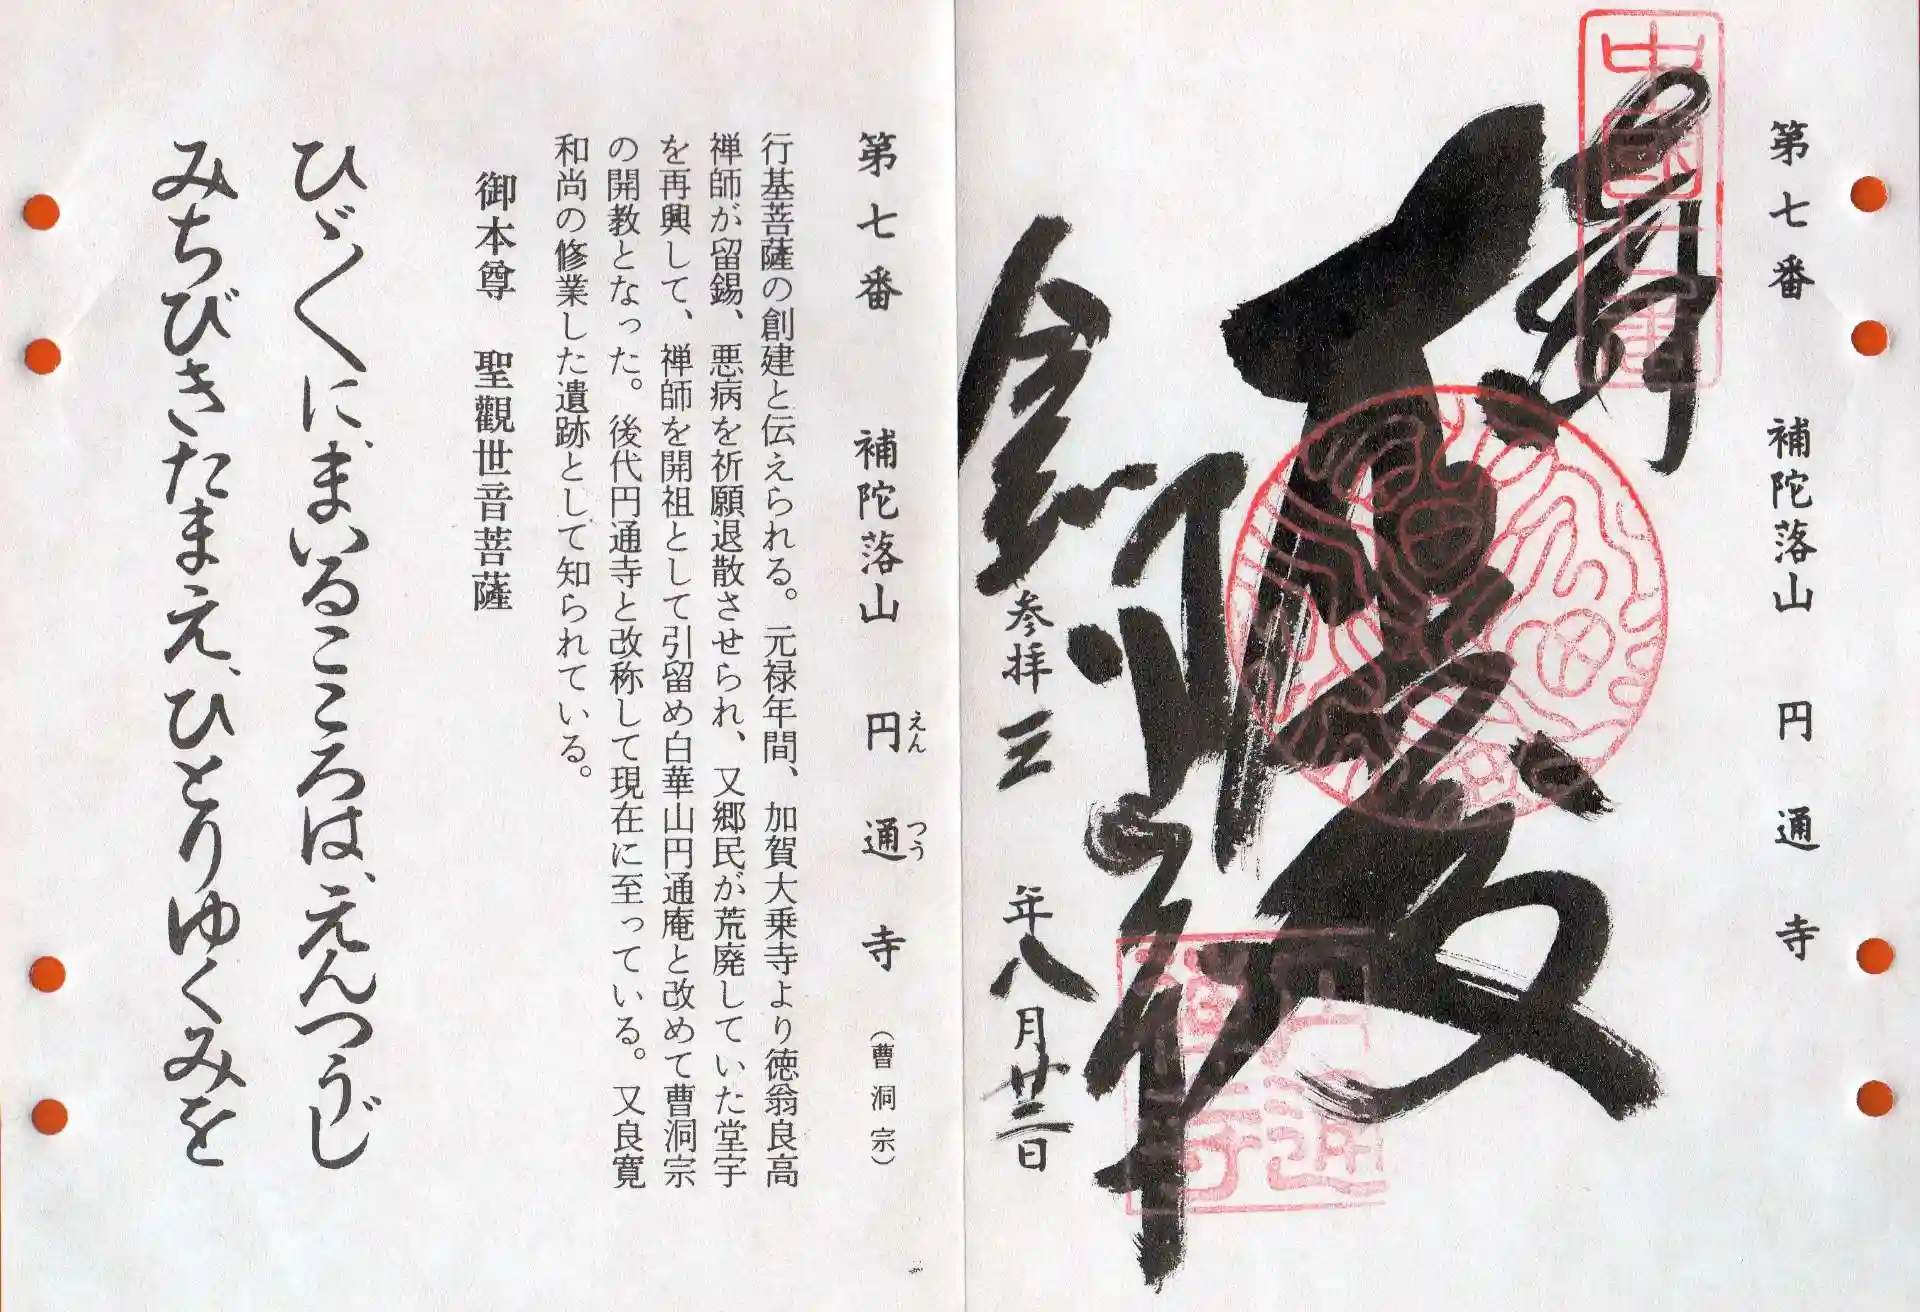 第七番　補陀落山　円通寺
中国七番
奉拝
大悲殿
円通寺
参拝三年八月廿三日
第七番　補陀落山　円通寺（曹洞宗）
えんつう
行基菩薩の創建と伝えられる。元禄年間、加賀大乗寺より徳翁良高
禅師が留錫、悪病を祈願退散させられ、又郷民が荒廃していた堂宇
を再興して、禅師を開祖として引留め白華山円通庵と改めて曹洞宗
の開教となった。後代円通寺と改称して現在に至っている。又良寛
和尚の修業した遺跡として知られている。
御本尊　聖觀世音菩薩
ひゞくに、まいるこころは、えんつうじ
みちびきたまえ、ひとりゆくみを